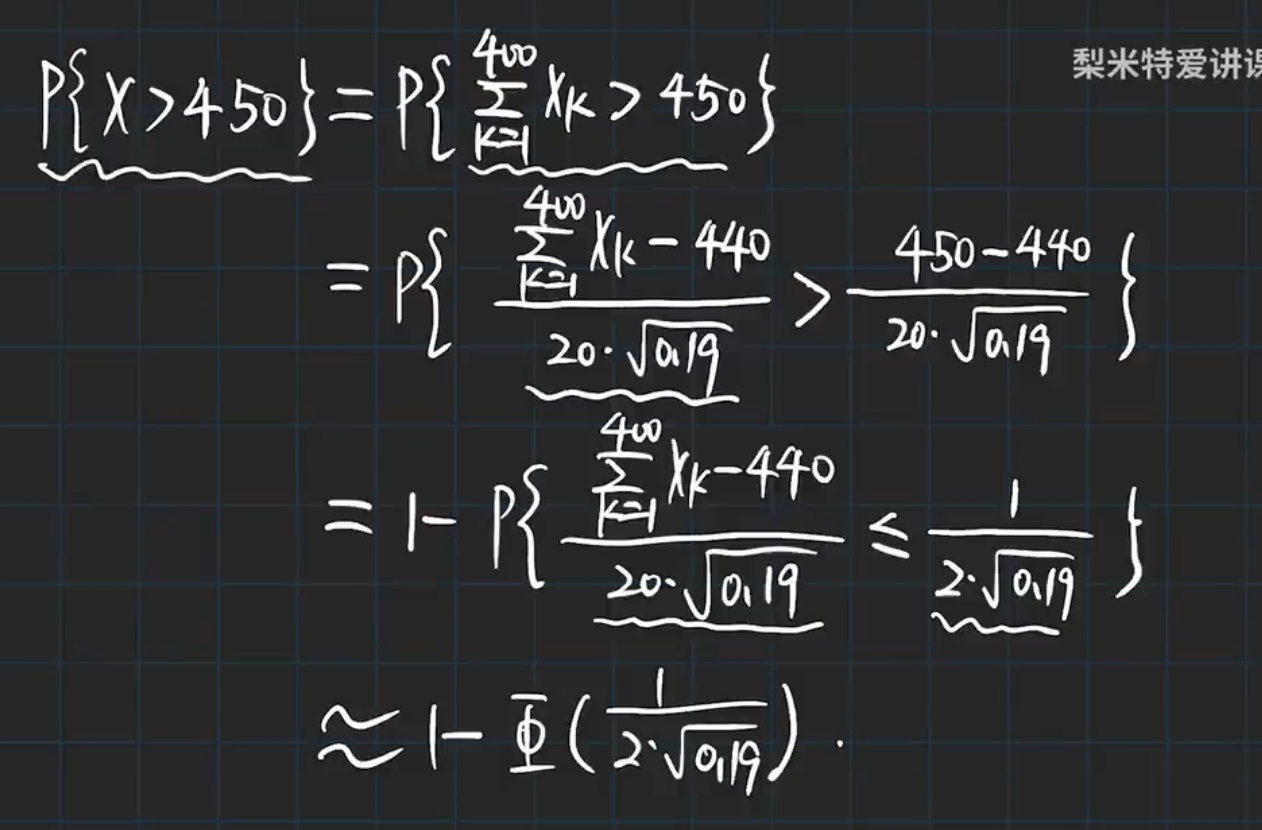 梨米特爱讲课
P{X>450}=P{∑_{k=1}^{400} X_k > 450}
=P{ \frac{∑_{k=1}^{400} X_k - 440}{20·√0.19} > \frac{450-440}{20·√0.19} }
=1-P{ \frac{∑_{k=1}^{400} X_k - 440}{20·√0.19} ≤ \frac{1}{2·√0.19} }
≈1-Φ(\frac{1}{2·√0.19}).